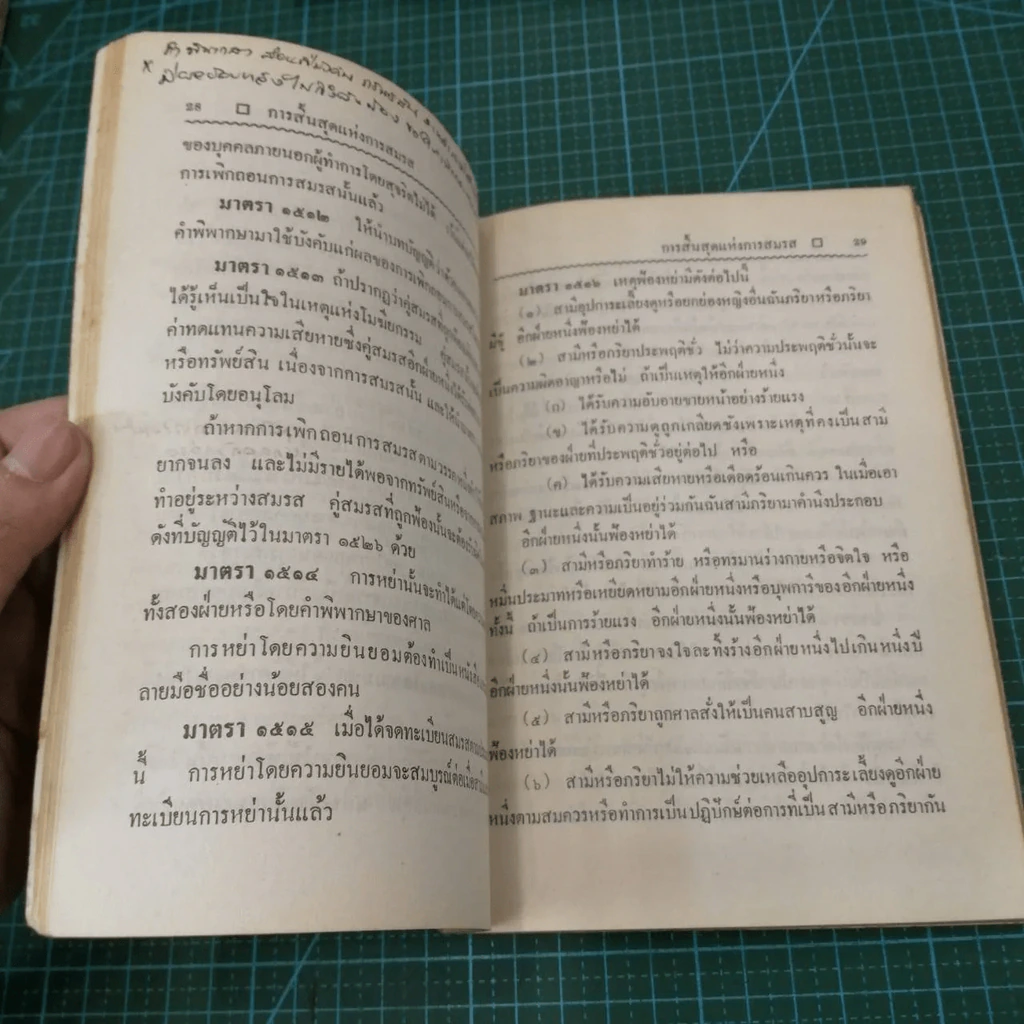 28 การสิ้นสุดแห่งการสมรส
ของบุคคลภายนอกผู้ทำการโดยสุจริตไม่ได้
การเพิกถอนการสมรสนั้นแล้ว
มาตรา ๑๕๑๒ ให้นำบทบัญญัติว่าด้วย
คำพิพากษามาใช้บังคับแก่ผลของการเพิกถอนการสมรส
มาตรา ๑๕๑๓ ถ้าปรากฏว่าคู่สมรสที่ถูกฟ้อง
ได้รู้เห็นเป็นใจในเหตุแห่งโมฆียกรรม
ค่าทดแทนความเสียหายซึ่งคู่สมรสอีกฝ่ายหนึ่งได้รับ
หรือทรัพย์สิน เนื่องจากการสมรสนั้น และให้นำ
บังคับโดยอนุโลม
ถ้าหากการเพิกถอนการสมรสตามวรรค
ยากจนลง และไม่มีรายได้พอจากทรัพย์สินหรือ
ทำอยู่ระหว่างสมรส คู่สมรสที่ถูกฟ้องนั้นจะต้อง
ดังที่บัญญัติไว้ในมาตรา ๑๕๒๖ ด้วย
มาตรา ๑๕๑๔ การหย่านั้นจะทำได้แต่โดย
ทั้งสองฝ่ายหรือโดยคำพิพากษาของศาล
การหย่าโดยความยินยอมต้องทำเป็นหนังสือ
ลายมือชื่ออย่างน้อยสองคน
มาตรา ๑๕๑๕ เมื่อได้จดทะเบียนสมรส
นี้ การหย่าโดยความยินยอมจะสมบูรณ์ต่อเมื่อ
ทะเบียนการหย่านั้นแล้ว
การสิ้นสุดแห่งการสมรส 29
มาตรา ๑๕๑๖ เหตุฟ้องหย่ามีดังต่อไปนี้
(๑) สามีอุปการะเลี้ยงดูหรือยกย่องหญิงอื่นฉันภริยาหรือภริยา
มีชู้ อีกฝ่ายหนึ่งฟ้องหย่าได้
(๒) สามีหรือภริยาประพฤติชั่ว ไม่ว่าความประพฤติชั่วนั้นจะ
เป็นความผิดอาญาหรือไม่ ถ้าเป็นเหตุให้อีกฝ่ายหนึ่ง
(ก) ได้รับความอับอายขายหน้าอย่างร้ายแรง
(ข) ได้รับความดูถูกเกลียดชังเพราะเหตุที่คงเป็นสามี
หรือภริยาของฝ่ายที่ประพฤติชั่วอยู่ต่อไป หรือ
(ค) ได้รับความเสียหายหรือเดือดร้อนเกินควร ในเมื่อเอา
สภาพ ฐานะและความเป็นอยู่ร่วมกันฉันสามีภริยามาคำนึงประกอบ
อีกฝ่ายหนึ่งนั้นฟ้องหย่าได้
(๓) สามีหรือภริยาทำร้าย หรือทรมานร่างกายหรือจิตใจ หรือ
หมิ่นประมาทหรือเหยียดหยามอีกฝ่ายหนึ่งหรือบุพการีของอีกฝ่ายหนึ่ง
ทั้งนี้ ถ้าเป็นการร้ายแรง อีกฝ่ายหนึ่งนั้นฟ้องหย่าได้
(๔) สามีหรือภริยาจงใจละทิ้งร้างอีกฝ่ายหนึ่งไปเกินหนึ่งปี
อีกฝ่ายหนึ่งนั้นฟ้องหย่าได้
(๕) สามีหรือภริยาถูกศาลสั่งให้เป็นคนสาบสูญ อีกฝ่ายหนึ่ง
ฟ้องหย่าได้
(๖) สามีหรือภริยาไม่ให้ความช่วยเหลืออุปการะเลี้ยงดูอีกฝ่าย
หนึ่งตามสมควรหรือทำการเป็นปฏิปักษ์ต่อการที่เป็นสามีหรือภริยากัน